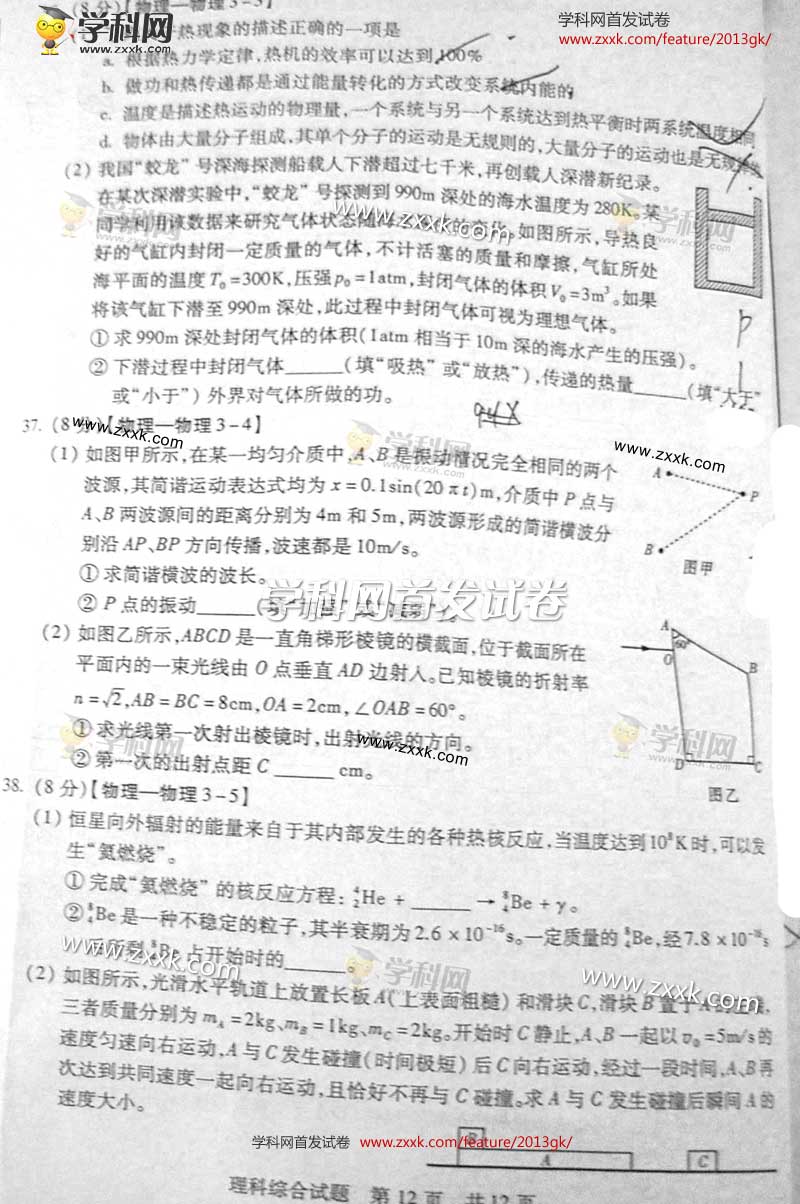 (8分)【物理—物理3-3】
学科网首发试卷
www.zxxk.com/feature/2013gk/
学科网
www.zxxk.com
热现象的描述正确的一项是
a. 根据热力学定律,热机的效率可以达到100%
b. 做功和热传递都是通过能量转化的方式改变系统内能的
c. 温度是描述热运动的物理量,一个系统与另一个系统达到热平衡时两系统温度相同
d. 物体由大量分子组成,其单个分子的运动是无规则的,大量分子的运动也是无规
(2) 我国“蛟龙”号深海探测船载人下潜超过七千米,再创载人深潜新纪录。
在某次深潜实验中,“蛟龙”号探测到990m深处的海水温度为280K。某
同学利用该数据来研究气体状态随 的变化,如图所示,导热良
好的气缸内封闭一定质量的气体,不计活塞的质量和摩擦,气缸所处
海平面的温度T₀=300K,压强p₀=1atm,封闭气体的体积V₀=3m³。如果
将该气缸下潜至990m深处,此过程中封闭气体可视为理想气体。
①求990m深处封闭气体的体积(1atm相当于10m深的海水产生的压强)。
②下潜过程中封闭气体______(填“吸热”或“放热”),传递的热量______(填“大于”
或“小于”)外界对气体所做的功。
37. (8分)【物理—物理3-4】
(1) 如图甲所示,在某一均匀介质中,A、B是振动情况完全相同的两个
波源,其简谐运动表达式均为x=0.1sin(20πt)m,介质中P点与
A、B两波源间的距离分别为4m和5m,两波源形成的简谐横波分
别沿AP、BP方向传播,波速都是10m/s。
①求简谐横波的波长。
②P点的振动______(填
A
P
B
图甲
学科网首发试卷
(2) 如图乙所示,ABCD是一直角梯形棱镜的横截面,位于截面所在
平面内的一束光线由O点垂直AD边射入。已知棱镜的折射率
n=√2,AB=BC=8cm,OA=2cm,∠OAB=60°。
①求光线第一次射出棱镜时,出射光线的方向。
②第一次的出射点距C ______ cm。
A
60°
O
B
D
C
图乙
38. (8分)【物理—物理3-5】
(1) 恒星向外辐射的能量来自于其内部发生的各种热核反应,当温度达到10⁸K时,可以发
生“氦燃烧”。
①完成“氦燃烧”的核反应方程:⁴₂He + ______ → ⁸₄Be + γ。
②⁸₄Be是一种不稳定的粒子,其半衰期为2.6×10⁻¹⁶s。一定质量的⁸₄Be,经7.8×10⁻¹⁶s
占开始时的______。
(2) 如图所示,光滑水平轨道上放置长板A(上表面粗糙)和滑块C,滑块B置于A的左端,
三者质量分别为mA=2kg、mB=1kg、mC=2kg。开始时C静止,A、B一起以v₀=5m/s的
速度匀速向右运动,A与C发生碰撞(时间极短)后C向右运动,经过一段时间,A、B再
次达到共同速度一起向右运动,且恰好不再与C碰撞。求A与C发生碰撞后瞬间A的
速度大小。
B
A
C
学科网首发试卷 www.zxxk.com/feature/2013gk/
理科综合试题 第12页 共12页